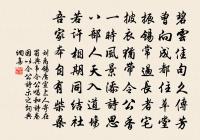 碧雲佳句久傳芳
曾向成都住草堂
振錫常過長者宅
披衣猶帶令公香
一時風景添詩思
八部人天入道場
若許相期同結社
吾家本自有柴桑
劉禹錫廣宣上人寄在
蜀與韋令公唱和詩卷
因以令公手札答詩示之